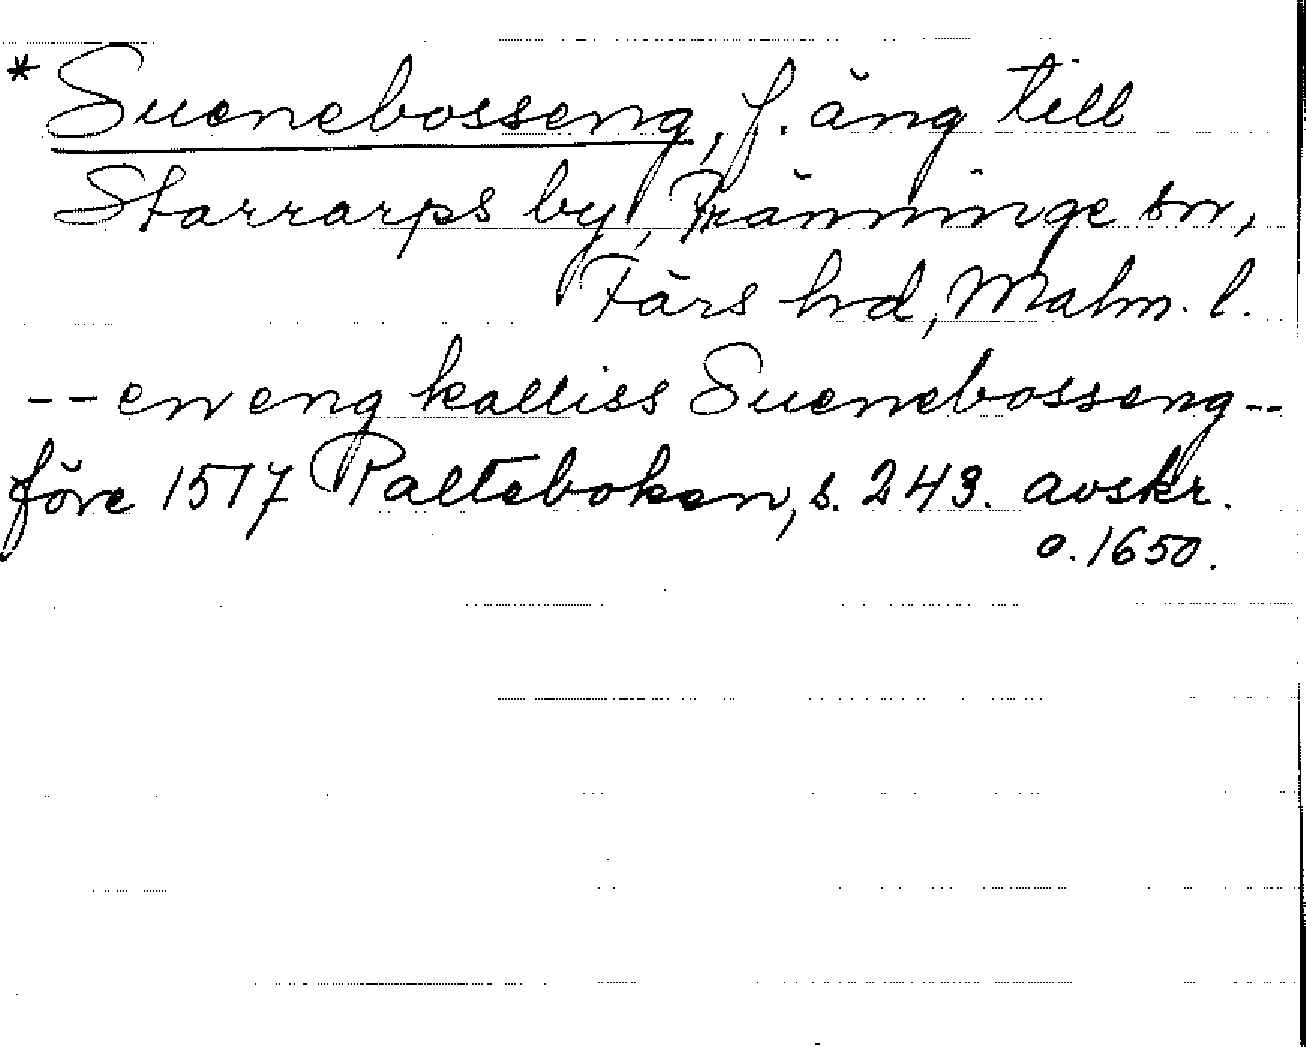 * Suenebosseng, f. äng till
Starrarps by, Fränninge sn,
Färs hrd, Malm. l.
-- en eng kalliss Suenebosseng --
före 1517 Palteboken, s. 243. avskr.
o. 1650.